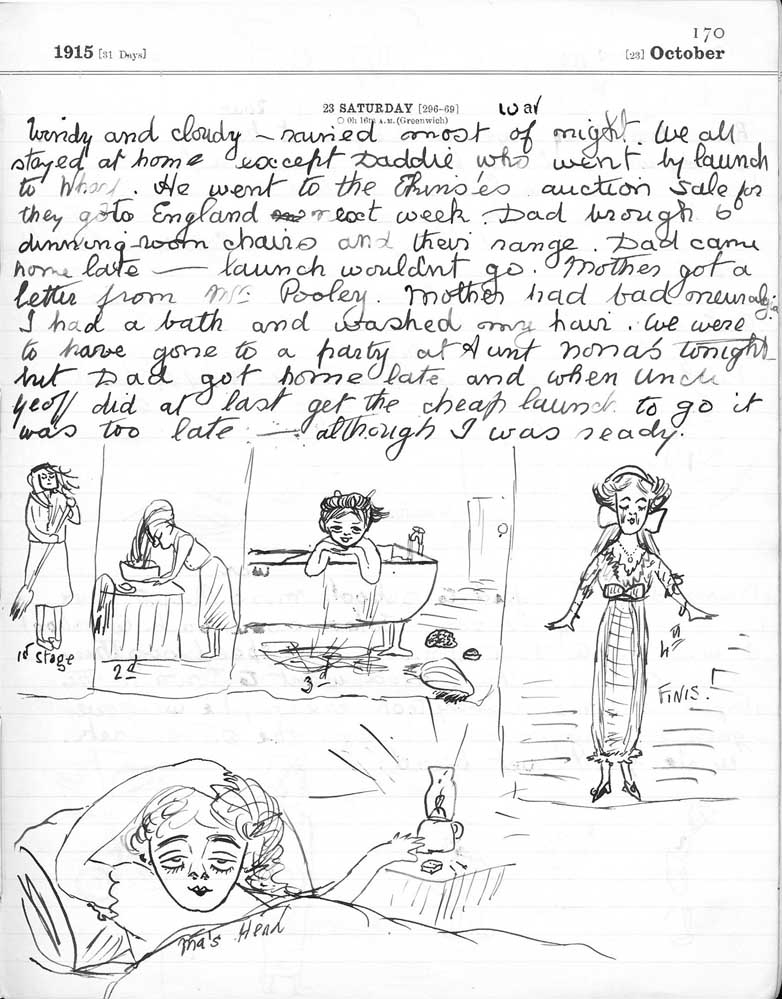 170
1915 [31 Days] [23] October
23 SATURDAY [296-69] war
0h 16m A.M. (Greenwich)
Windy and cloudy – rained most of night. We all
stayed at home except Daddie who went by launch
to Wharf. He went to the auction sale for
they go to England next week. Dad brough 6
dinning-room chairs and their range. Dad came
home late — launch wouldnt go. Mother got a
letter from Mrs Pooley. Mother had bad neuralgia
I had a bath and washed my hair. We were
to have gone to a party at Aunt Nona's tonight
but Dad got home late and when Uncle
Geoff did at last get the cheap launch to go it
was too late — although I was ready.
1st stage
2d
3d
4th
FINIS!
Ma's Head